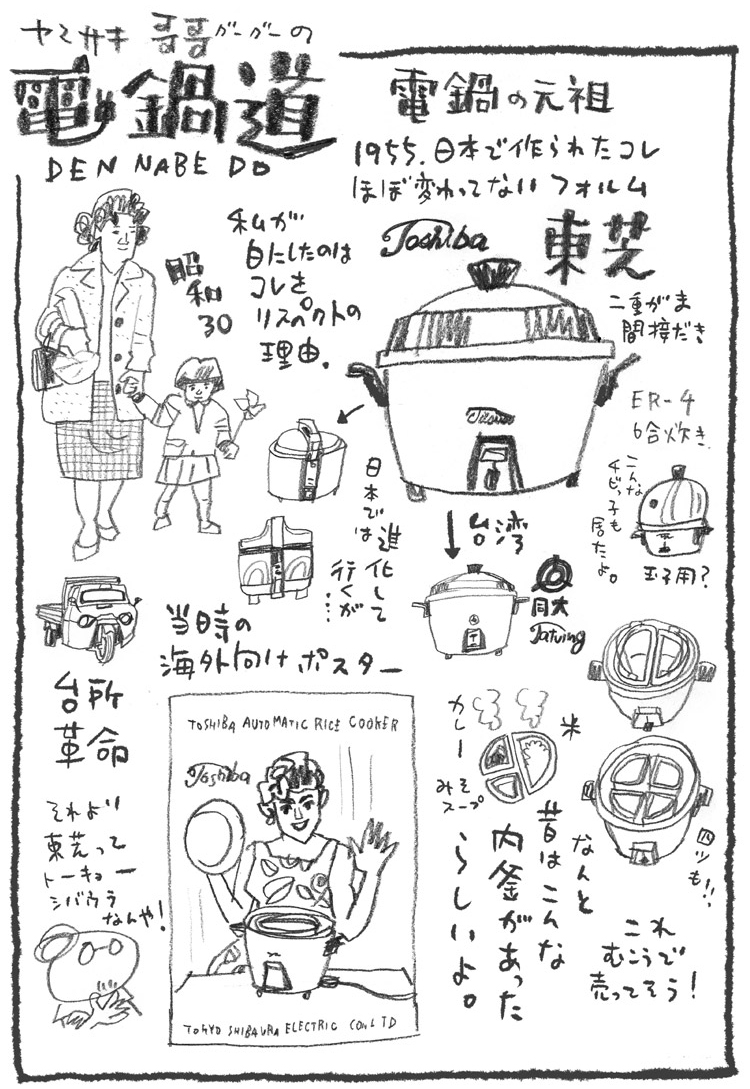 ヤミサキ 哥哥ガーガーの
電鍋道
DEN NABE DO
電鍋の元祖
1955.日本で作られたコレ
ほぼ変わってないフォルム
私が
目にしたのは
コレを
リスペクトの
理由.
昭
和
30
Toshiba
東芝
二重がま
間接だき
ER-4
6合炊き.
Toshiba
こんな
チビっ子も
居たよ。
玉子用?
日本では
進化して
行くが…
台湾
大同
Tatung
当時の
海外向けポスター
台所
革命
TOSHIBA AUTOMATIC RICE COOKER
Toshiba
TOKYO SHIBAURA ELECTRIC CO., LTD
それより
東芝って
トーキョー
シバウラ
なんや!
カレー
米
みそ
スープ
なんと
昔はこんな
内釜があった
らしいよ。
四ツも!!
これ
むこうで
売ってそう!